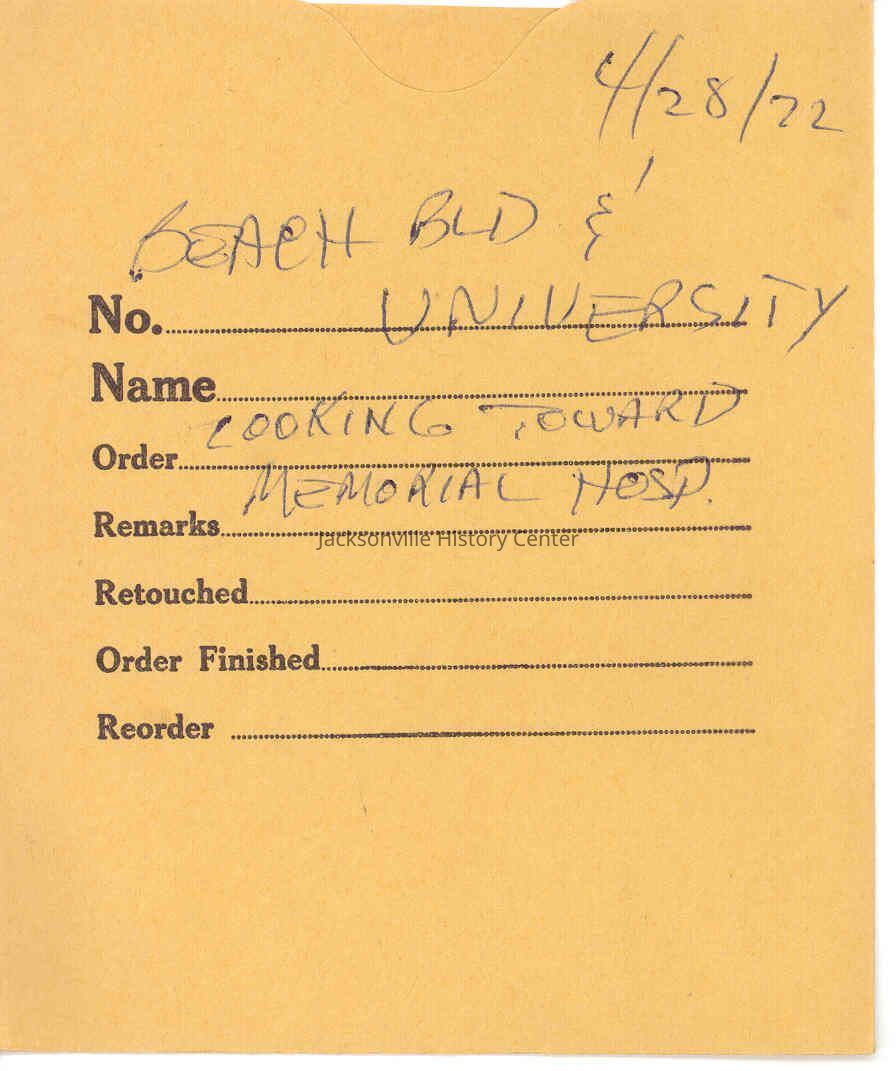 4/28/72
BEACH BLD &
No. UNIVERSITY
Name
LOOKING TOWARD
Order
MEMORIAL HOSP.
Remarks
Jacksonville History Center
Retouched
Order Finished
Reorder